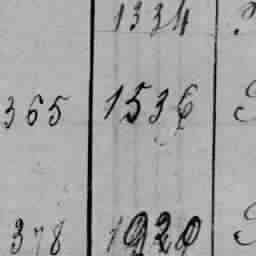 1334
365 1536
378 1920